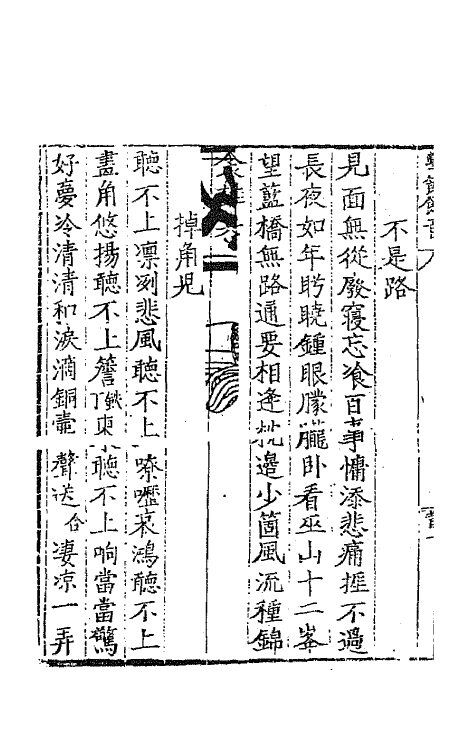 不是路
見面無從廢寢忘飡百事慵添悲痛捱不過
長夜如年盻曉鍾眼朦朧臥看巫山十二峯
望藍橋無路通要相逢枕邊少箇風流種錦
掉角兒
聽不上凛冽悲風聽不上嘹嚦哀鴻聽不上
畫角悠揚聽不上簷丁鉄東聽不上响當當驚
好夢冷清清和淚滴銅壷聲送合凄凉一弄